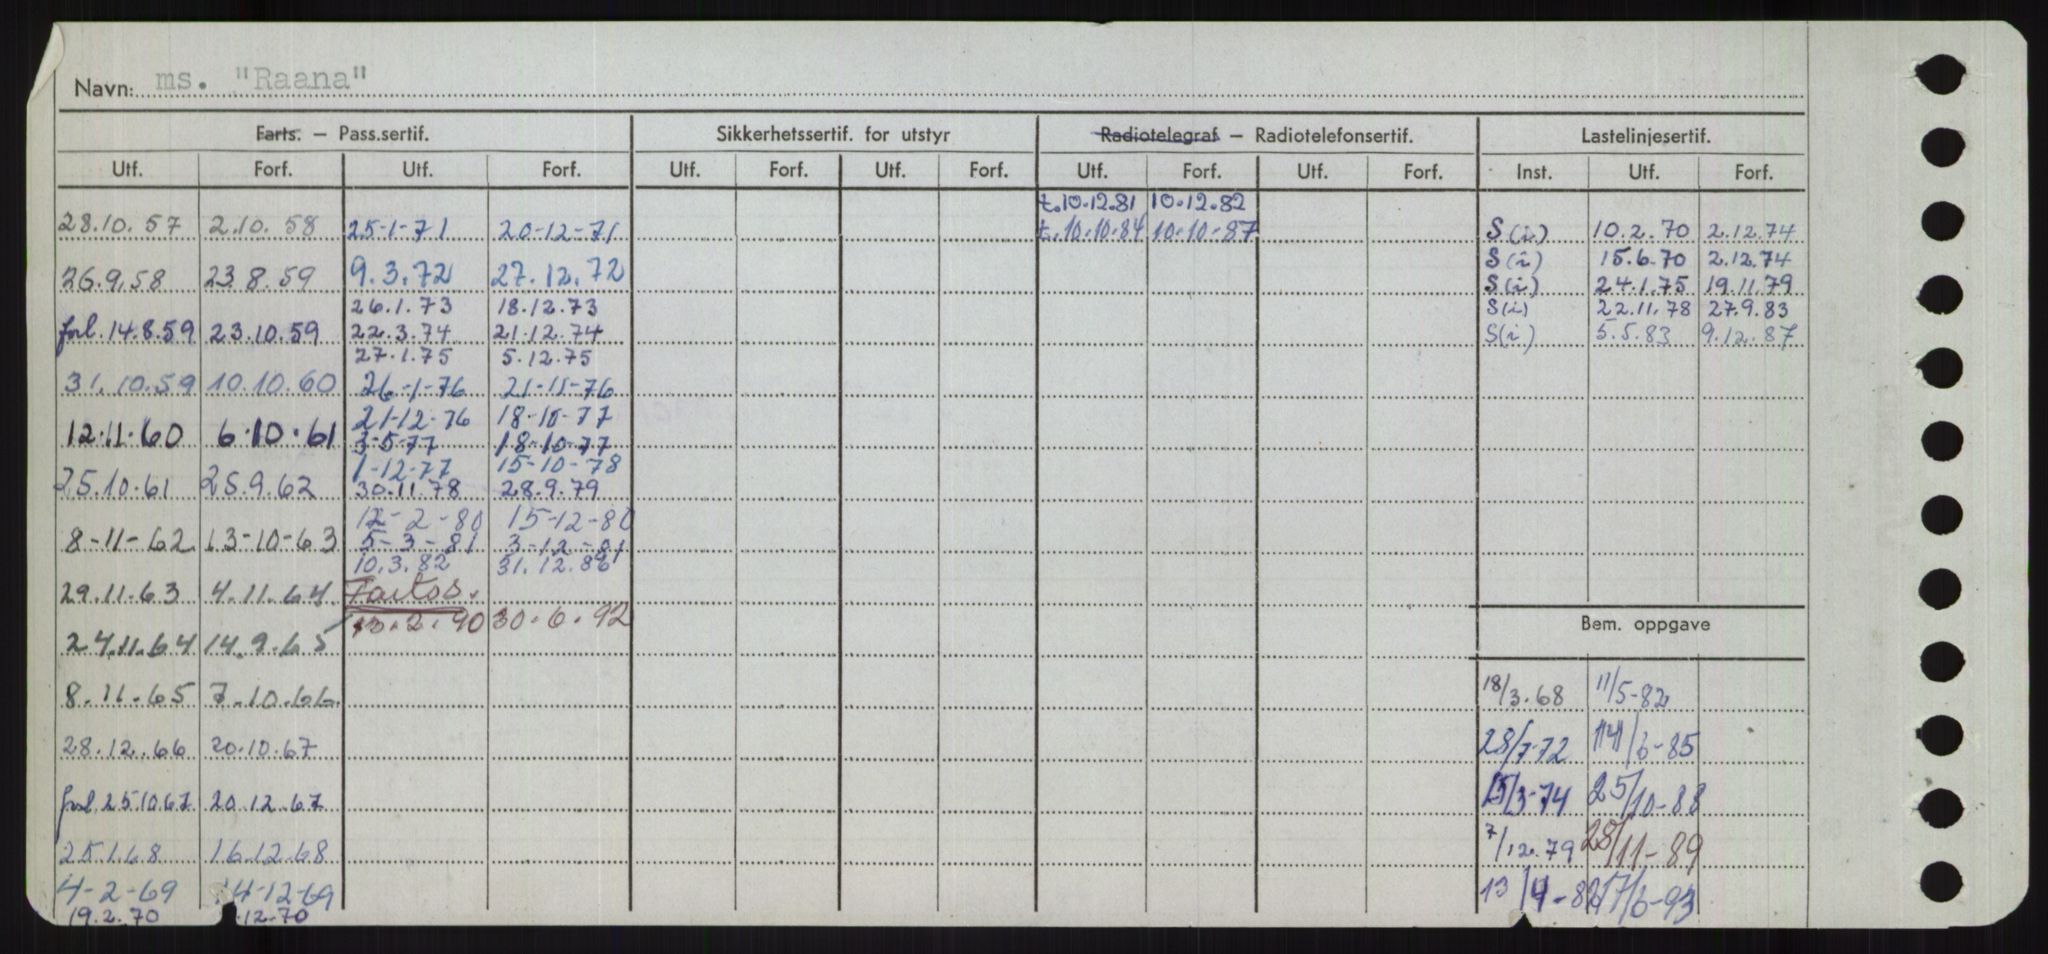 Navn: ms. "Raana"
Farts. – Pass.sertif. Sikkerhetssertif. for utstyr Radiotelegraf – Radiotelefonsertif. Lastelinjesertif.
Utf. Forf. Utf. Forf. Utf. Forf. Utf. Forf. Utf. Forf. Utf. Forf. Inst. Utf. Forf.
t.10.12.81 10.12.82
28.10.57 2.10.58 25-1-71 20-12-71 t.10.10.84 10.10-87 S(i) 10.2.70 2.12.74
S(i) 15.6.70 2.12.74
26.9.58 23.8.59 9.3.72 27.12.72 S(i) 24.1.75 19.11.79
26.1.73 18.12.73 S(i) 22.11.78 27.9.83
forl.14.8.59 23.10.59 22.3.74 21.12.74 S(i) 5.5.83 9.12.87
27.1.75 5.12.75
31.10.59 10.10.60 26-1-76 21-11-76
21-12-76 18-10-77
12.11.60 6.10.61 3-5-77 18-10-77
1-12-77 15-10-78
25.10.61 25.9.62 30.11.78 28.9.79
12-2-80 15-12-80
8-11-62 13-10-63 5-3-81 3-12-81
10.3.82 31.12.86
29.11.63 4.11.64 Fartss.
13.2.90 30.6.92 Bem. oppgave
24.11.64 14.9.65
8.11.65 7.10.66 18/3.68 11/5-82
28.12.66 20.10.67 28/7-72 14/6-85
forl.25.10.67 20.12.67 15/3-74 25/10-88
25.1.68 16.12.68 7/12.79 28/11-89
4-2-69 14-12-69 13/4-82 17/6-93
19.2.70 .12.70